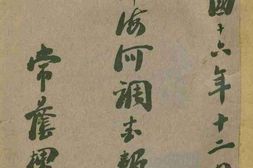 國十六年十二月
海河調查報
常蔭槐